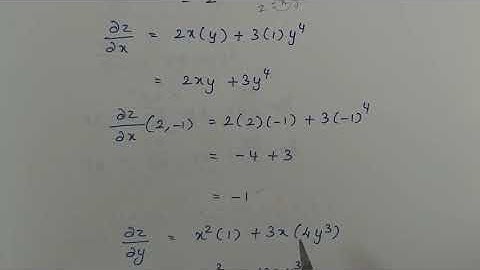 ∂z/∂x = 2x(y) + 3(1)y⁴
= 2xy + 3y⁴
∂z/∂x (2, -1) = 2(2)(-1) + 3(-1)⁴
= -4 + 3
= -1
∂z/∂y = x²(1) + 3x(4y³)